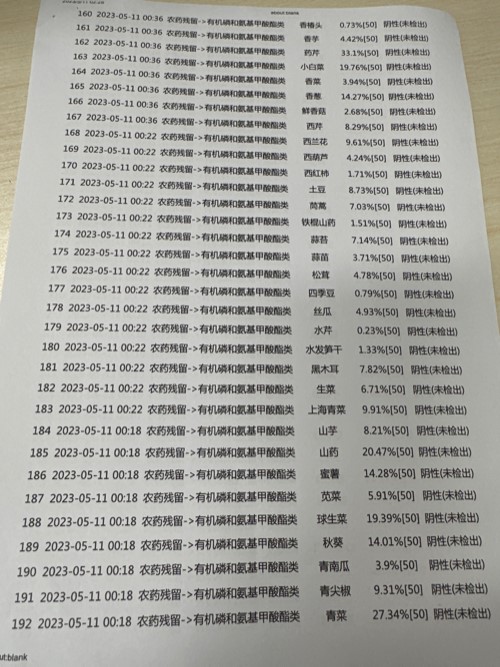 about:blank
160 2023-05-11 00:36 农药残留->有机磷和氨基甲酸酯类 香椿头 0.73%[50] 阴性(未检出)
161 2023-05-11 00:36 农药残留->有机磷和氨基甲酸酯类 香芋 4.42%[50] 阴性(未检出)
162 2023-05-11 00:36 农药残留->有机磷和氨基甲酸酯类 药芹 33.1%[50] 阴性(未检出)
163 2023-05-11 00:36 农药残留->有机磷和氨基甲酸酯类 小白菜 19.76%[50] 阴性(未检出)
164 2023-05-11 00:36 农药残留->有机磷和氨基甲酸酯类 香菜 3.94%[50] 阴性(未检出)
165 2023-05-11 00:36 农药残留->有机磷和氨基甲酸酯类 香葱 14.27%[50] 阴性(未检出)
166 2023-05-11 00:36 农药残留->有机磷和氨基甲酸酯类 鲜香菇 2.68%[50] 阴性(未检出)
167 2023-05-11 00:36 农药残留->有机磷和氨基甲酸酯类 西芹 8.29%[50] 阴性(未检出)
168 2023-05-11 00:22 农药残留->有机磷和氨基甲酸酯类 西兰花 9.61%[50] 阴性(未检出)
169 2023-05-11 00:22 农药残留->有机磷和氨基甲酸酯类 西葫芦 4.24%[50] 阴性(未检出)
170 2023-05-11 00:22 农药残留->有机磷和氨基甲酸酯类 西红柿 1.71%[50] 阴性(未检出)
171 2023-05-11 00:22 农药残留->有机磷和氨基甲酸酯类 土豆 8.73%[50] 阴性(未检出)
172 2023-05-11 00:22 农药残留->有机磷和氨基甲酸酯类 茼蒿 7.03%[50] 阴性(未检出)
173 2023-05-11 00:22 农药残留->有机磷和氨基甲酸酯类 铁棍山药 1.51%[50] 阴性(未检出)
174 2023-05-11 00:22 农药残留->有机磷和氨基甲酸酯类 蒜苔 7.14%[50] 阴性(未检出)
175 2023-05-11 00:22 农药残留->有机磷和氨基甲酸酯类 蒜苗 3.71%[50] 阴性(未检出)
176 2023-05-11 00:22 农药残留->有机磷和氨基甲酸酯类 松茸 4.78%[50] 阴性(未检出)
177 2023-05-11 00:22 农药残留->有机磷和氨基甲酸酯类 四季豆 0.79%[50] 阴性(未检出)
178 2023-05-11 00:22 农药残留->有机磷和氨基甲酸酯类 丝瓜 4.93%[50] 阴性(未检出)
179 2023-05-11 00:22 农药残留->有机磷和氨基甲酸酯类 水芹 0.23%[50] 阴性(未检出)
180 2023-05-11 00:22 农药残留->有机磷和氨基甲酸酯类 水发笋干 1.33%[50] 阴性(未检出)
181 2023-05-11 00:22 农药残留->有机磷和氨基甲酸酯类 黑木耳 7.82%[50] 阴性(未检出)
182 2023-05-11 00:22 农药残留->有机磷和氨基甲酸酯类 生菜 6.71%[50] 阴性(未检出)
183 2023-05-11 00:22 农药残留->有机磷和氨基甲酸酯类 上海青菜 9.91%[50] 阴性(未检出)
184 2023-05-11 00:18 农药残留->有机磷和氨基甲酸酯类 山芋 8.21%[50] 阴性(未检出)
185 2023-05-11 00:18 农药残留->有机磷和氨基甲酸酯类 山药 20.47%[50] 阴性(未检出)
186 2023-05-11 00:18 农药残留->有机磷和氨基甲酸酯类 蜜薯 14.28%[50] 阴性(未检出)
187 2023-05-11 00:18 农药残留->有机磷和氨基甲酸酯类 苋菜 5.91%[50] 阴性(未检出)
188 2023-05-11 00:18 农药残留->有机磷和氨基甲酸酯类 球生菜 19.39%[50] 阴性(未检出)
189 2023-05-11 00:18 农药残留->有机磷和氨基甲酸酯类 秋葵 14.01%[50] 阴性(未检出)
190 2023-05-11 00:18 农药残留->有机磷和氨基甲酸酯类 青南瓜 3.9%[50] 阴性(未检出)
191 2023-05-11 00:18 农药残留->有机磷和氨基甲酸酯类 青尖椒 9.31%[50] 阴性(未检出)
192 2023-05-11 00:18 农药残留->有机磷和氨基甲酸酯类 青菜 27.34%[50] 阴性(未检出)
ut:blank